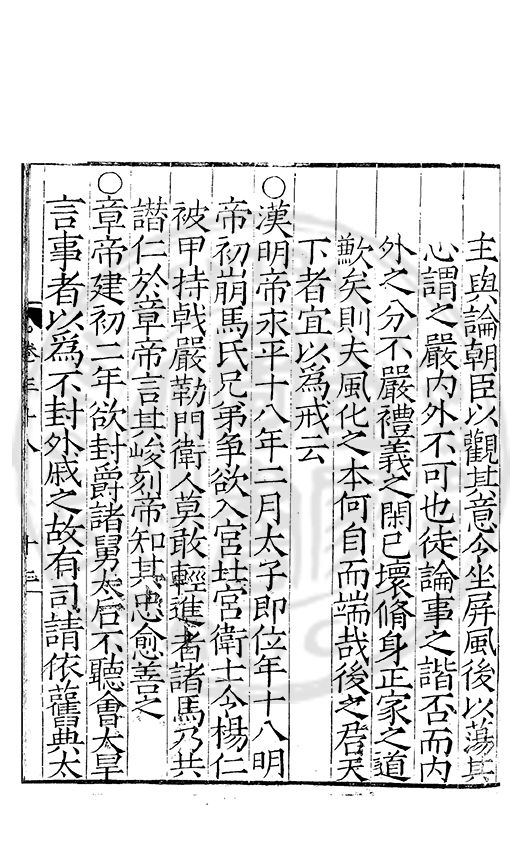 主與論朝臣以觀其意今坐屏風後以蕩其
心謂之嚴內外不可也徒論事之諧否而內
外之分不嚴禮義之閑已壞脩身正家之道
歝矣則夫風化之本何自而端哉後之君天
下者宜以為戒云
○漢明帝永平十八年二月太子即位年十八明
帝初崩馬氏兄弟争欲入宮北宮衛士令楊仁
被甲持戟嚴勒門衛人莫敢輕進者諸馬乃共
譛仁於章帝言其峻刻帝知其忠愈善之
○章帝建初二年欲封爵諸舅太后不聽會大旱
言事者以為不封外戚之故有司請依舊典太